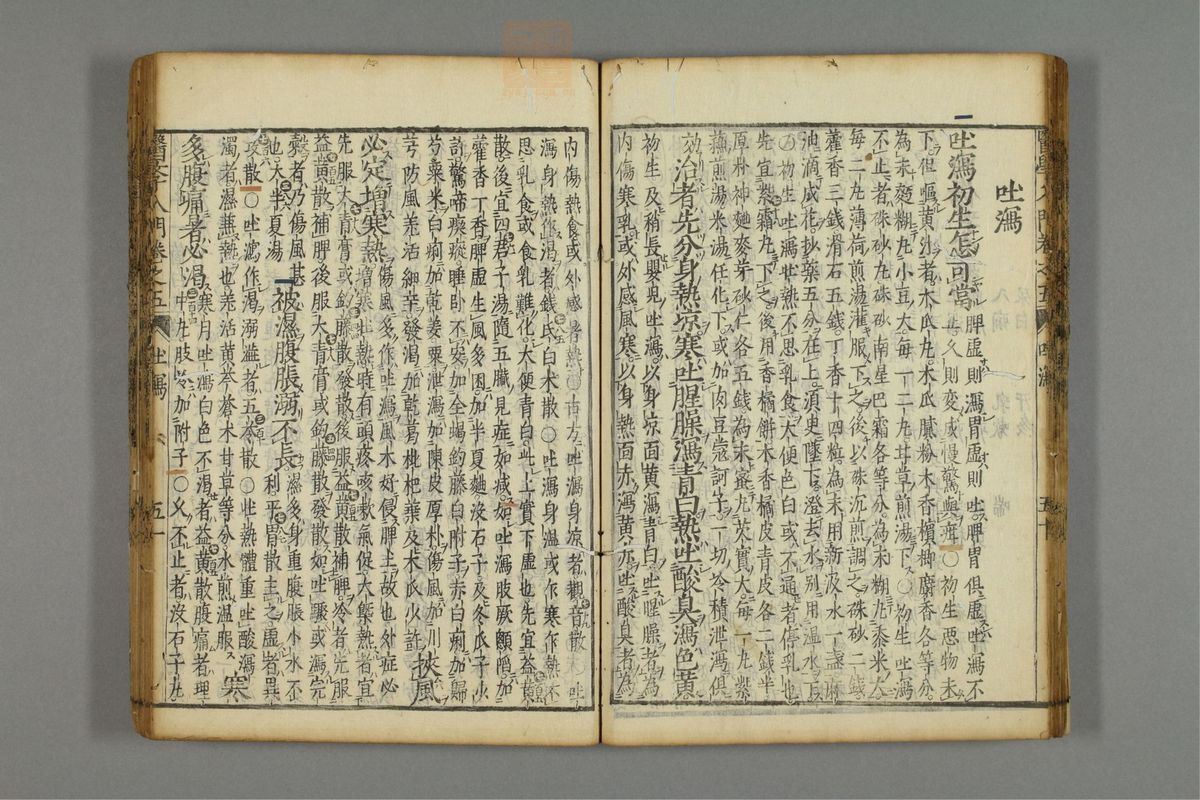 醫學入門卷之五 吐瀉 五十
吐瀉
吐瀉初生怎可當 脾虛則瀉胃虛則吐脾胃俱虛吐瀉不
止久則変成慢驚與疳〇初生惡物未
下但嘔黃汁者木瓜丸木瓜膩粉木香檳榔麝香各等分
為末麵糊丸小豆大每一二丸甘草煎湯下〇初生吐瀉
不止者硃砂丸硃砂南星巴霜各等分為末糊丸黍米大
每一二丸薄荷煎湯灌服下之後以硃沉煎調之硃砂二錢
藿香三錢滑石五錢丁香十四粒為末用新汲水一盞麻
油滴成花抄藥五分在上須㬰墜下澄去水別用温水下
〇初生吐瀉壮熱不思乳食大便色白或不通者停乳也
先宜紫霜丸下之後用香橘餅木香橘皮青皮各二錢半
厚朴神麯麥芽砂仁各五錢為末蜜丸芡實大每一丸紫
蘇煎湯米湯任化下或加肉豆蔻訶子一切冷積泄瀉俱
效 治者先分身熱凉寒吐腥臊瀉青白熱吐酸臭瀉色黄
初生及稍長嬰兒吐瀉以身凉面黄瀉青白吐腥臊者為
内傷寒乳或外感風寒以身熱面赤瀉黄赤吐酸臭者為
内傷熱食或外感暑熱〇古方吐瀉身凉者觀音散 吐
瀉身熱作渴者錢氏白木散〇吐瀉身温或乍寒乍熱不
思乳食或食乳難化大便青白此上實下虛也先宜益黃
散後宜四君子湯隨五臟見症加减如吐瀉肢厥顖陷加
藿香丁香脾虛生風多困加半夏麯沒石子及冬瓜子少
許驚啼瘈瘲睡卧不安加全蝎鈎藤白附子赤白痢加歸
芍粟米白痢加乾姜粟泄瀉加陳皮厚朴傷風加川
芎防風羌活細辛發渴加乾葛枇杷葉及木瓜少許 挾風
必定增寒熱 增寒壮熱時有頭疼咳嗽氣促大槩熱者宜
先服大青膏 傷風多作吐瀉風木好侵脾土故也外症必
益黃散補脾後服大青膏或鈎藤散發散如吐驟或瀉完
穀者乃傷風甚 被濕腹脹溺不長 濕多身重腹脹小水不
也大半夏湯 利平胃散主之虛者異
攻散〇吐瀉作渴溺澁者五苓散〇壮熱體重吐酸瀉
濁者濕兼熱也羌活黃芩蒼木甘草等分水煎温服 寒
多腹痛者必渴 寒月吐瀉白色不渴者益黃散腹痛者理
中丸肢冷加附子〇久不止者没石子丸
醫學入門卷之五 吐瀉 五一